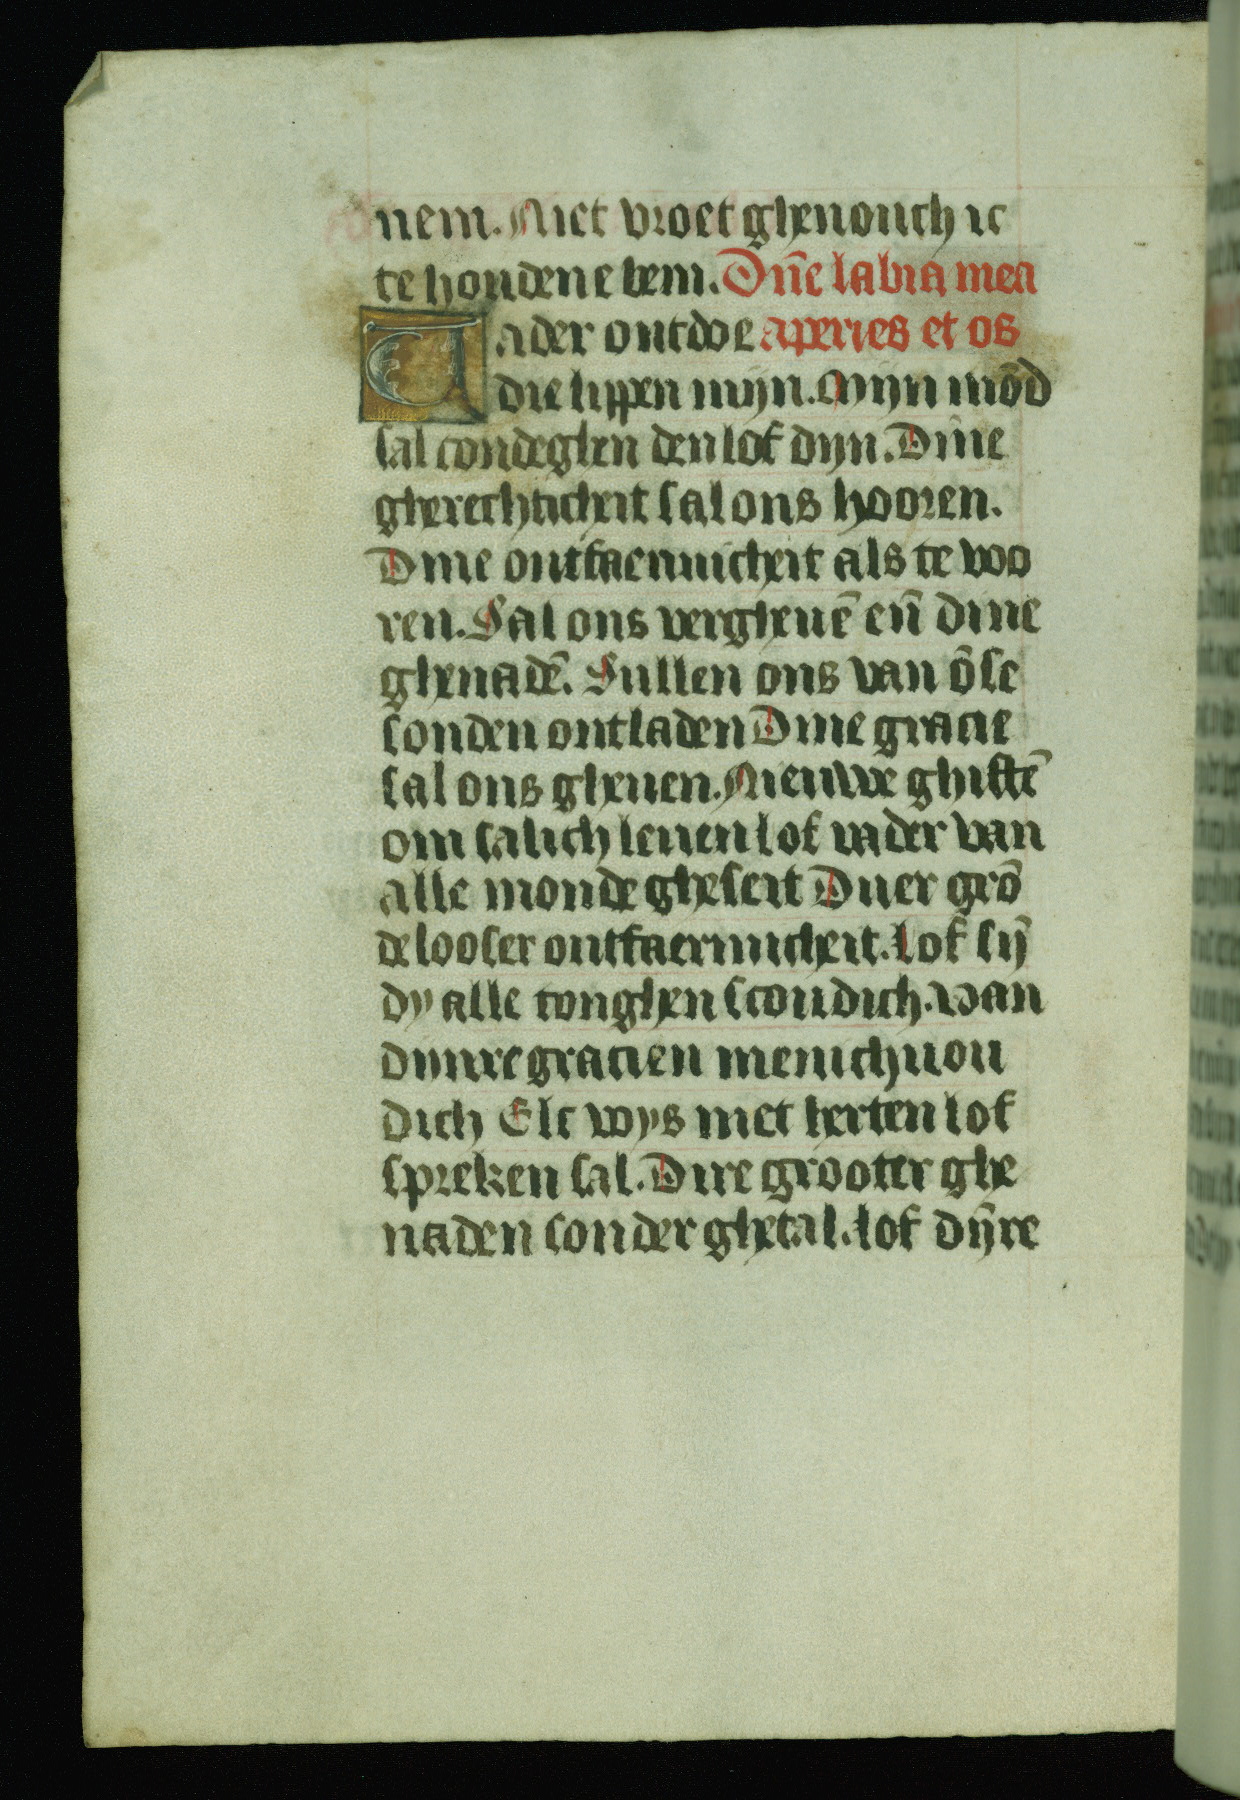 nem. Niet vroet ghenouch ic
te houdene bem. Dn̄e labia mea
Vader ontdoe aperies et os
die lippen mijn. Mijn mōd
sal condeghen den lof dijn. Dine
gherechticheit sal ons hooren.
Dine ontfaermicheit als te voo
ren. Sal ons vergheuē en̄ dine
ghenadē. Sullen ons van ōse
sonden ontladen Dine gracie
sal ons gheuen. Nieuwe ghiftē
om salich leuen lof vader van
alle monde gheseit Duer grō
delooser ontfaermicheit. Lof sij̄
dy alle tonghen scoudich. Van
dijnre gracien menichuou
dich Elc wys met herten lof
spreken sal. Dire grooter ghe
naden sonder ghetal. lof dij̄re